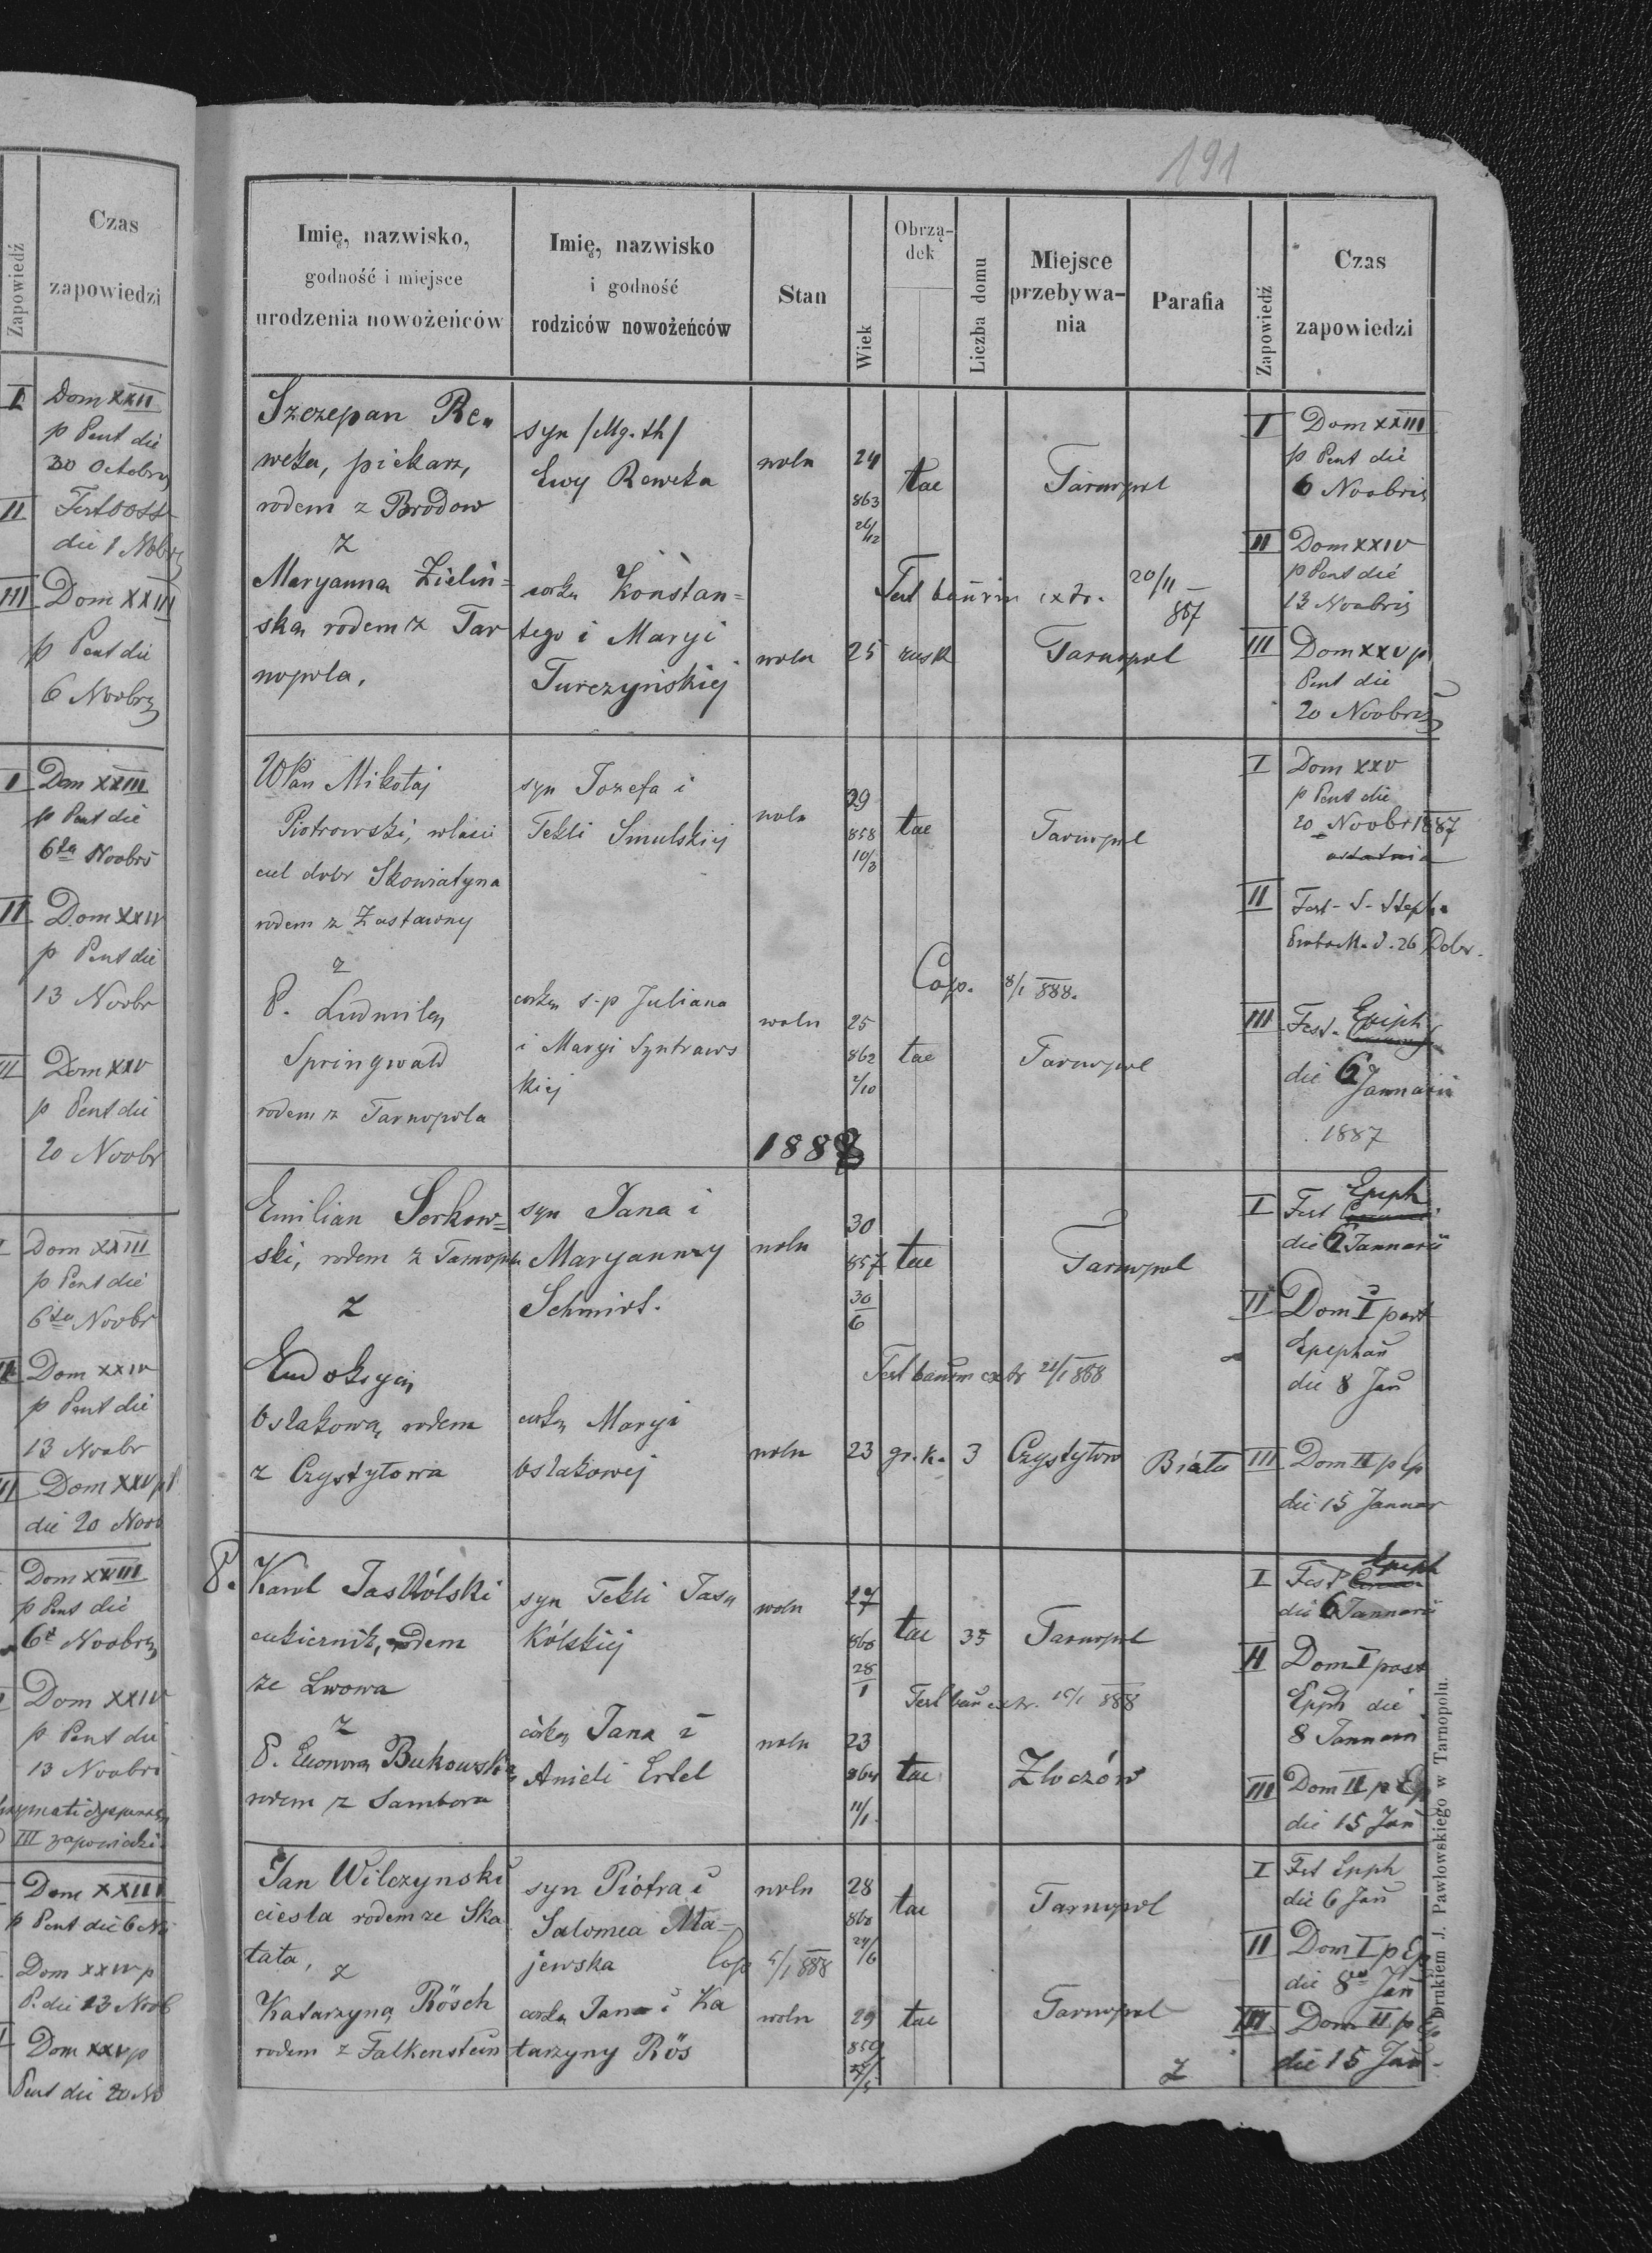 Czas
Zapowiedź
zapowiedzi
I Dom XXII
p Pent die
30 Octobr
II Fest OOSS
die 1 Nobr
III Dom XXIII
p Pent die
6 Noobr
I Dom XXIII
p Pent die
6ta Noobrs
II Dom XXIV
p Pent die
13 Noobr
III Dom XXV
p Pent die
20 Noobr
I Dom XXIII
p Pent die
6ta Noobr
II Dom XXIV
p Pent die
13 Noobr
III Dom XXV p P
die 20 Noob
Dom XXIII
p Pent die
6ta Noobr
Dom XXIV
p Pent die
13 Noobri
III zapowiedzi
Dom XXIII
p Pent die 6 No
Dom XXIV p
P. die 13 Noob
Dom XXV p
Pent die 20 No
191
Imię, nazwisko,
godność i miejsce
urodzenia nowożeńców
Imię, nazwisko
i godność
rodziców nowożeńców
Stan
Wiek
Obrzą-
dek
Liczba domu
Miejsce
przebywa-
nia
Parafia
Zapowiedź
Czas
zapowiedzi
Szczepan Re„
weka, piekarz,
rodem z Brodow
z
Maryanna Zieliń=
ska, rodem z Tar
nopola.
syn /Mg. th/
Ewy Reweka
corka Konstan=
tego i Maryi
Turczyńskiej
woln 24
863
26/12
tac
Tarnopol
Test bannin extr. 20/11
887
woln 25 rusk Tarnopol
I Dom XXIII
p Pent die
6 Noobris
II Dom XXIV
p Pent die
13 Noobris
III Dom XXV p
Pent die
20 Noobris
WPan Mikołaj
Piotrowski, właści
ciel dobr Skowiatyna
rodem z Zastawny
z
P. Ludmiłą
Springwald
rodem z Tarnopola
syn Jozefa i
Tekli Smulskiej
corka s-p Juliana
i Maryi Syntraws
kiej
woln 29
858
10/8
tac
Tarnopol
Cop. 8/1 888.
woln 25
862
2/10
tac
Tarnopol
I Dom XXV
p Pent die
20 Noobr 1887
ostatnia
II Fest - S - Steph.
d. 26 Debr.
III Fest. Epiph
die 6 Jannarii
1887
1888
Emilian Serkow=
ski, rodem z Tarnopola
z
Eudokyą
Oslakowa, rodem
z Czystytowa
syn Jana i
Maryanny
Schmidt.
corka Maryi
Oslakowej
woln 30
857
30/6
tac
Tarnopol
Test bannm extr 21/1 888
woln 23 gr. k. 3 Czystytow Biała
I Fest Epiph
die 6 Jannarii
II Dom I post
Epiphan
die 8 Jan
III Dom II p Ep
die 15 Januar
P. Karol Jaskólski
cukiernik, rodem
ze Lwowa
z
P. Eleonorą Bukowską
rodem z Sambora
syn Tekli Jasn
kólskiej
córka Jana i
Anieli Ertel
woln 27
860
28/1
tac 35 Tarnopol
Test ban extr. 15/1 888
woln 23
864
11/1
tac Złoczów
I Fest Epiph
die 6 Jannarii
II Dom I post
Epph die
8 Jannari
III Dom II p Ep
die 15 Jan
Jan Wilczynski
ciesla rodem ze Ska
łata,
z
Katarzyną Rösch
rodem z Falkenstein
syn Piotra i
Salomea Ma=
jewska
corka Jana i Ka
tarzyny Rös
woln 28
860
24/6
tac Tarnopol
Cop 5/1 888
woln 29
859
tac Tarnopol
I Fest Epph
die 6 Jan
II Dom I p Ep
die 8va Jan
III Dom II p Ep
die 15 Jan
Drukiem J. Pawłowskiego w Tarnopolu.